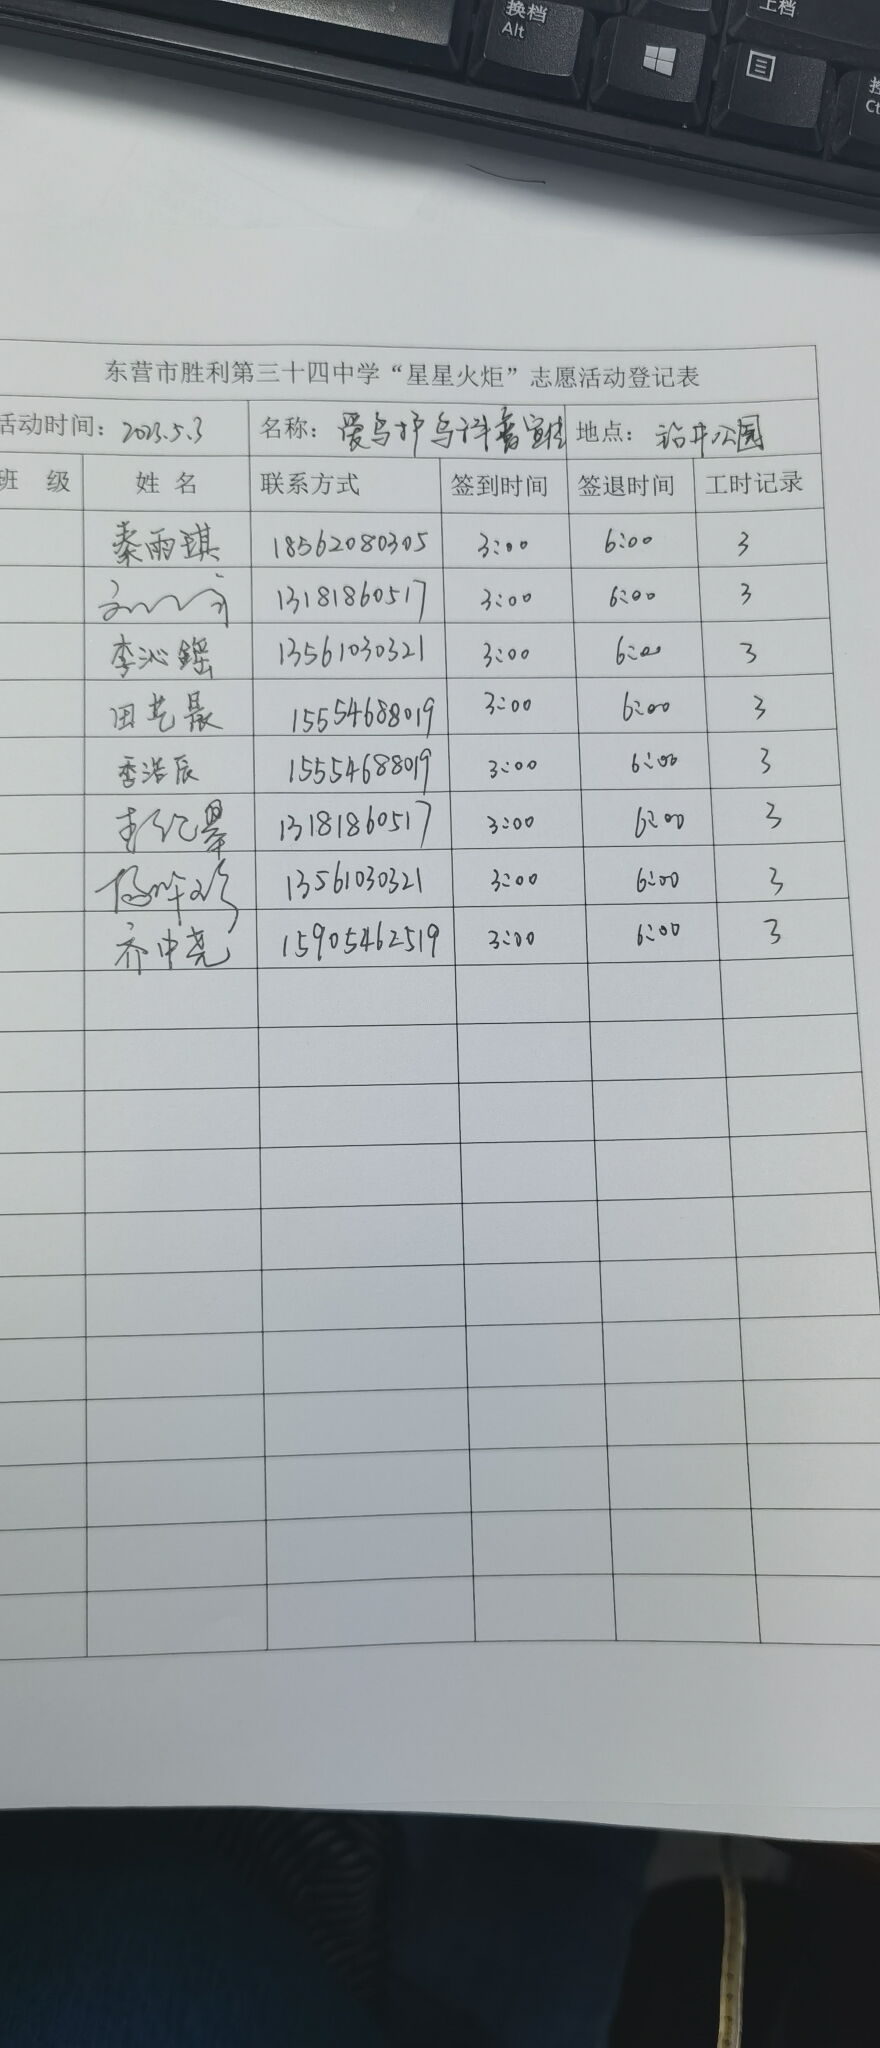 换档
Alt
上档
控
Ct
东营市胜利第三十四中学“星星火炬”志愿活动登记表
活动时间：2023.5.3 名称：爱鸟护鸟科普宣传 地点：钻井公园
班 级 姓 名 联系方式 签到时间 签退时间 工时记录
秦雨琪 18562080305 3:00 6:00 3
13181860517 3:00 6:00 3
李沁鑫 13561030321 3:00 6:00 3
田艺晨 15554688019 3:00 6:00 3
季浩辰 15554688019 3:00 6:00 3
13181860517 3:00 6:00 3
13561030321 3:00 6:00 3
齐中尧 15905462519 3:00 6:00 3